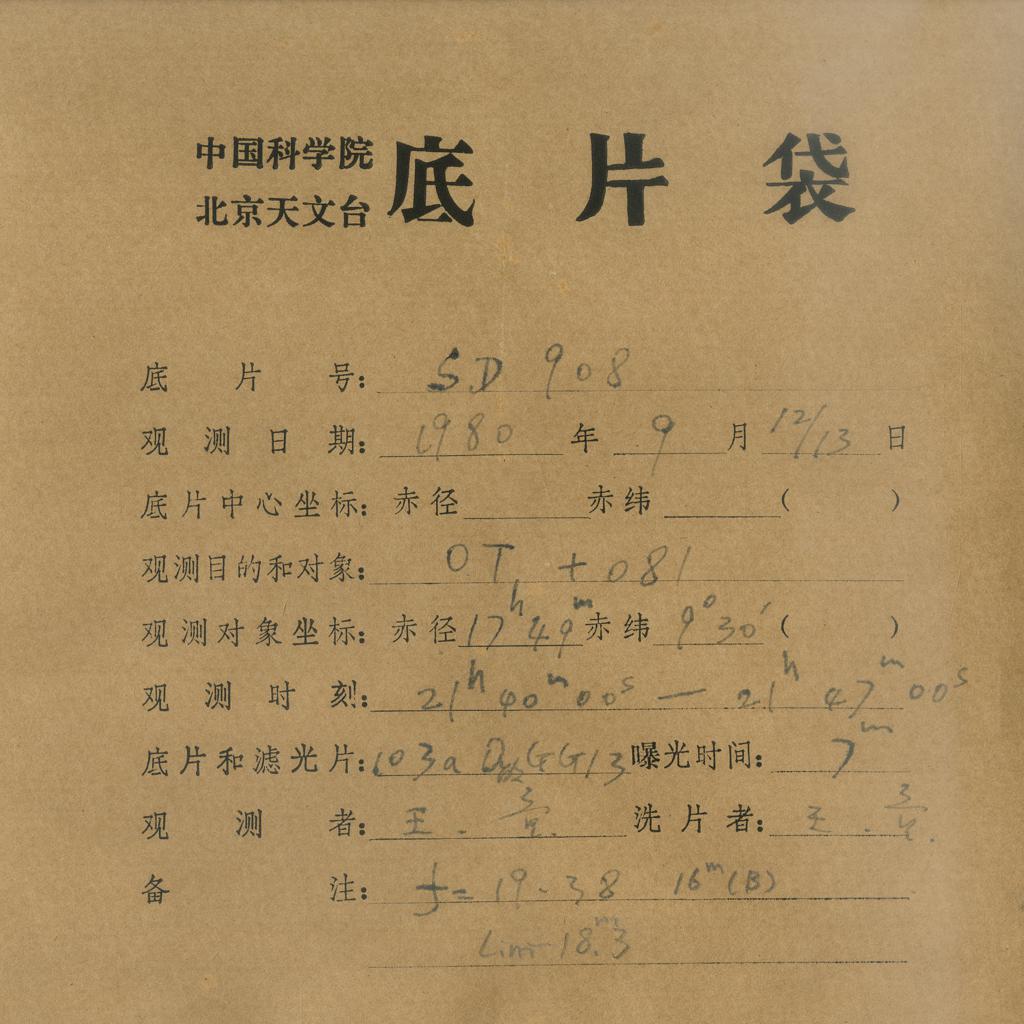 中国科学院
北京天文台
底片袋
底片号: SD 908
观测日期: 1980 年 9 月 12/13 日
底片中心坐标: 赤径 赤纬 ( )
观测目的和对象: OT + 081
观测对象坐标: 赤径 17h 49m 赤纬 9° 30′ ( )
观测时刻: 21h 40m 00s — 21h 47m 00s
底片和滤光片: 103a GG13 曝光时间: 7m
观测者: 王. 洗片者: 王.
备注: f = 19.38 16m (B)
Limit 18.m3